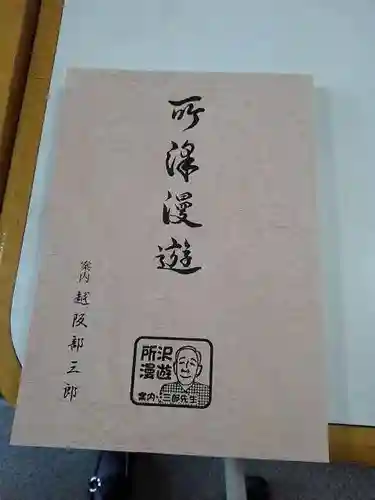 所澤漫遊
案内 越阪部三郎
所沢
漫遊
案内:三郎先生